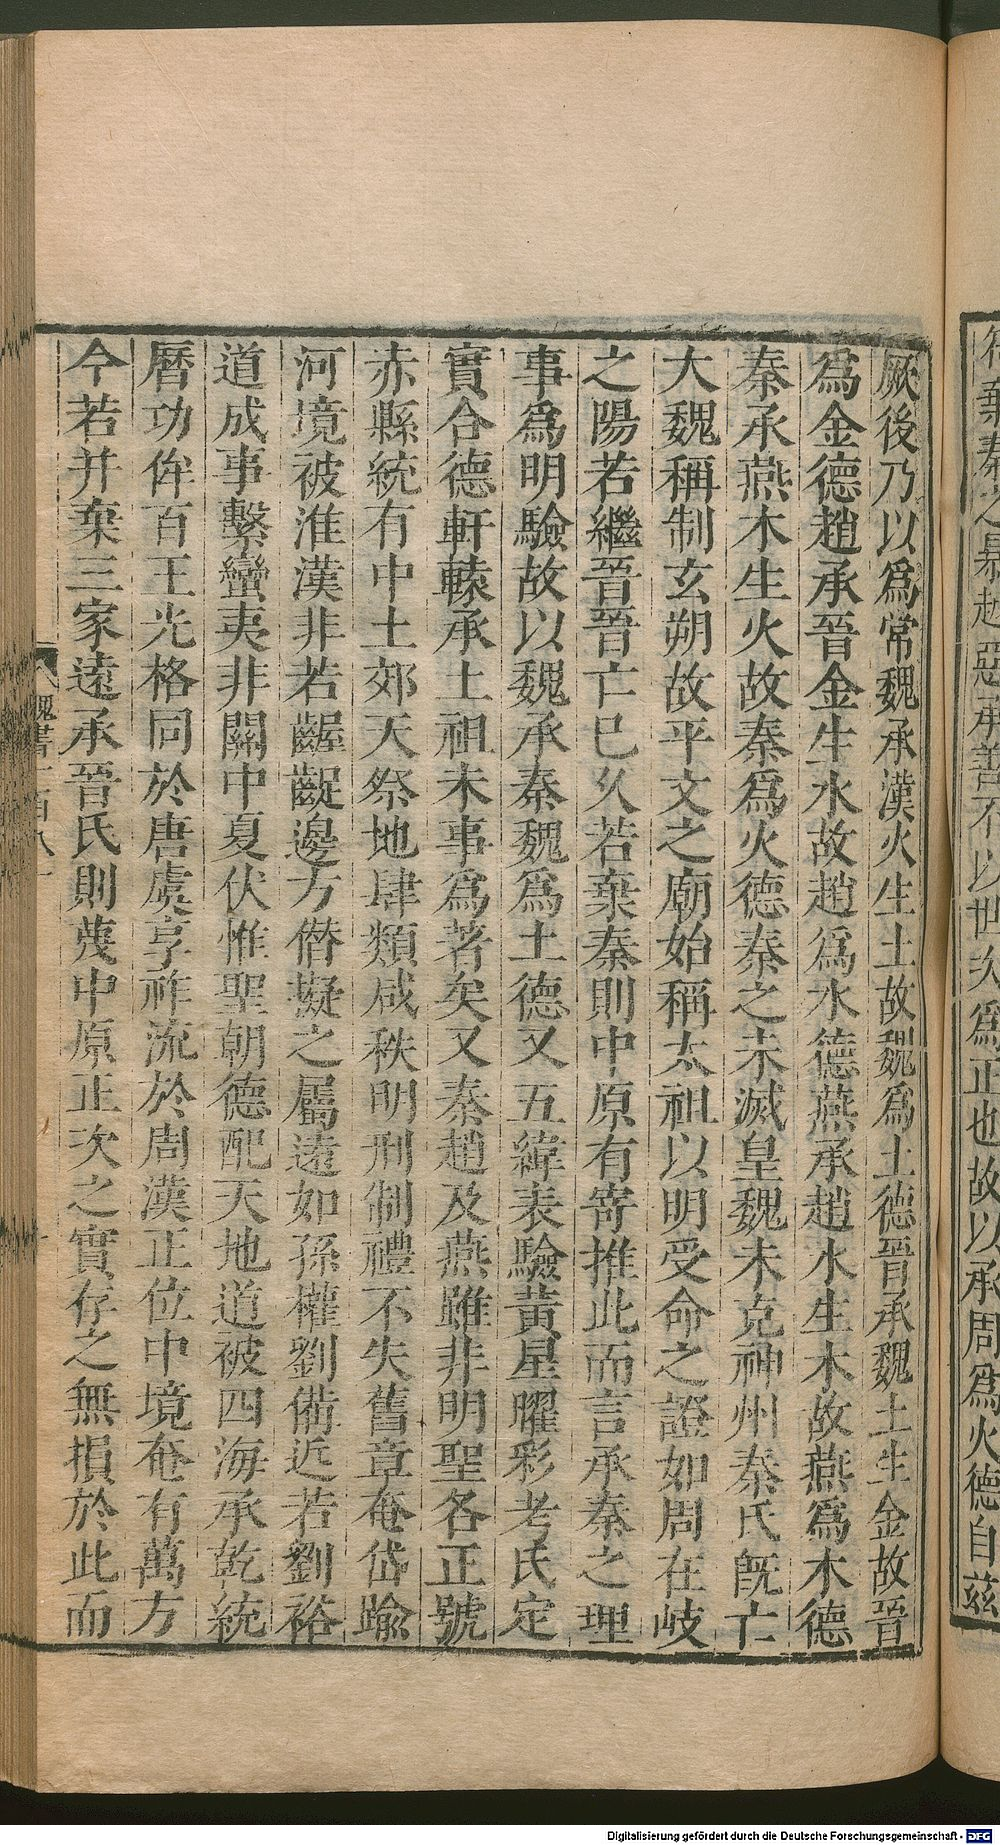 從棄秦之暴越惡承善不以世次爲正也故以承周爲火德自兹
厥後乃以爲常魏承漢火生土故魏爲土德晉承魏土生金故晉
爲金德趙承晉金生水故趙爲水德燕承趙水生木故燕爲木德
秦承燕木生火故秦爲火德秦之未滅皇魏未克神州秦氏旣亡
大魏稱制玄朔故平文之廟始稱太祖以明受命之證如周在岐
之陽若繼晉晉亡已久若棄秦則中原有寄推此而言承秦之理
事爲明驗故以魏承秦魏爲土德又五緯表驗黃星曜彩考氏定
實合德軒轅承土祖未事爲著矣又秦趙及燕雖非明聖各正號
赤縣統有中土郊天祭地肆類咸秩明刑制禮不失舊章奄岱踰
河境被淮漢非若齷齪邊方僭擬之屬遠如孫權劉備近若劉裕
道成事繫蠻夷非關中夏伏惟聖朝德配天地道被四海承乾統
曆功侔百王光格同於唐虞享祚流於周漢正位中境奄有萬方
今若并棄三家遠承晉氏則蔑中原正次之實存之無損於此而
魏書一百八一
Digitalisierung gefördert durch die Deutsche Forschungsgemeinschaft - DFG